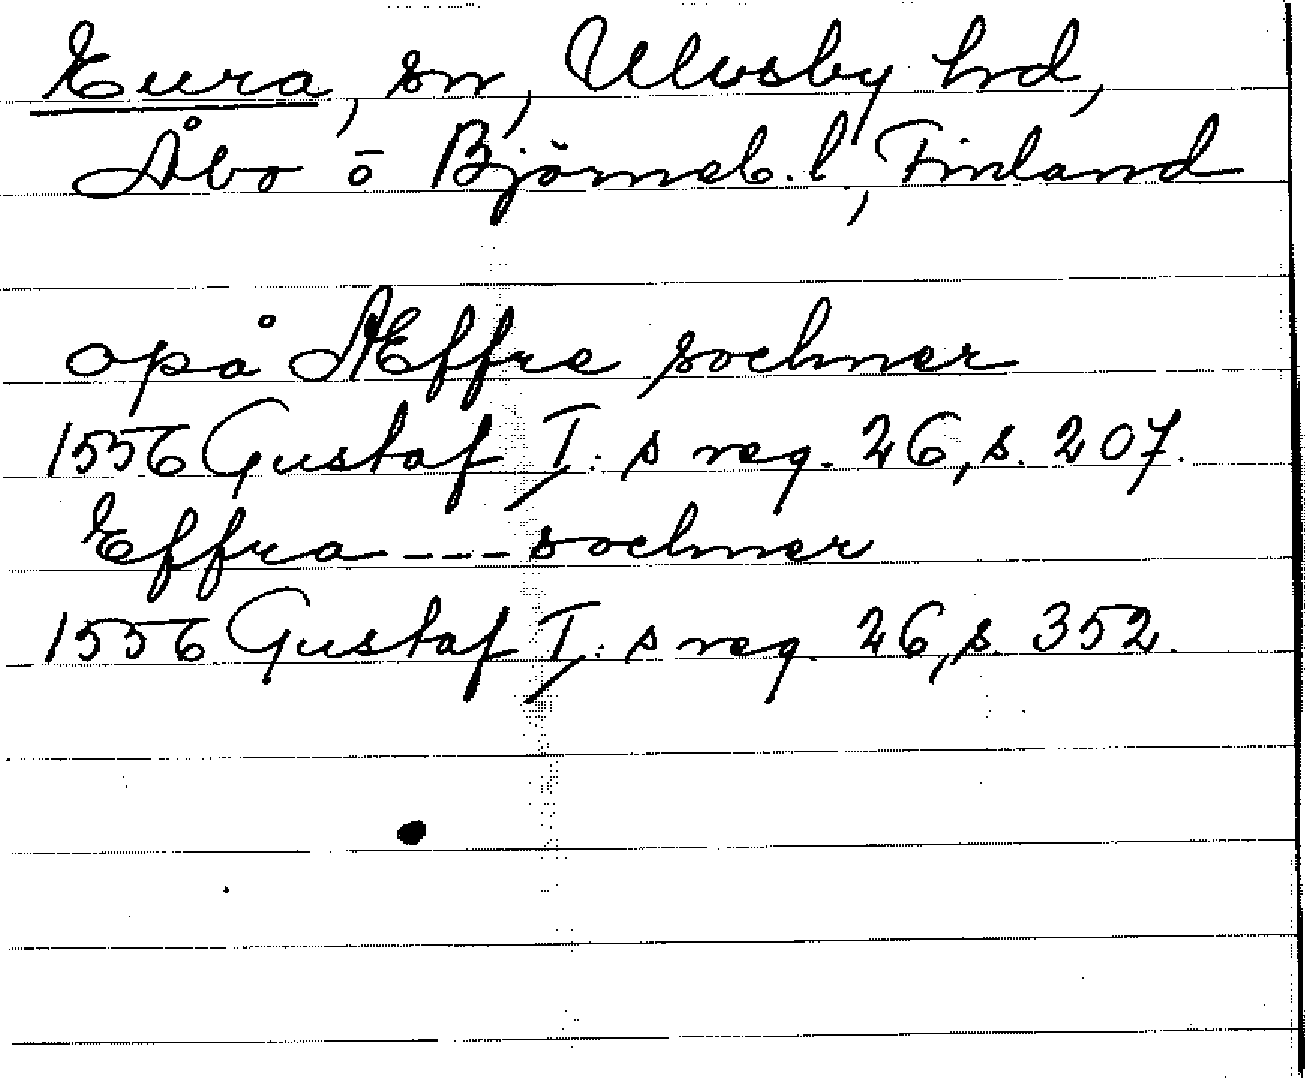 Eura, sn, Ulvsby hd,
Åbo o Björneb. l., Finland
opå Æffre sochner
1556 Gustaf I:s reg. 26, s. 207.
Effra --- sochner
1556 Gustaf I:s reg. 26, s. 352.